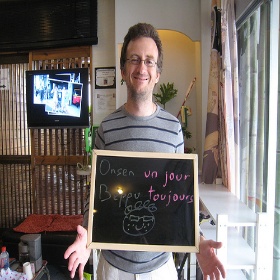 Onsen un jour
Beppu toujours